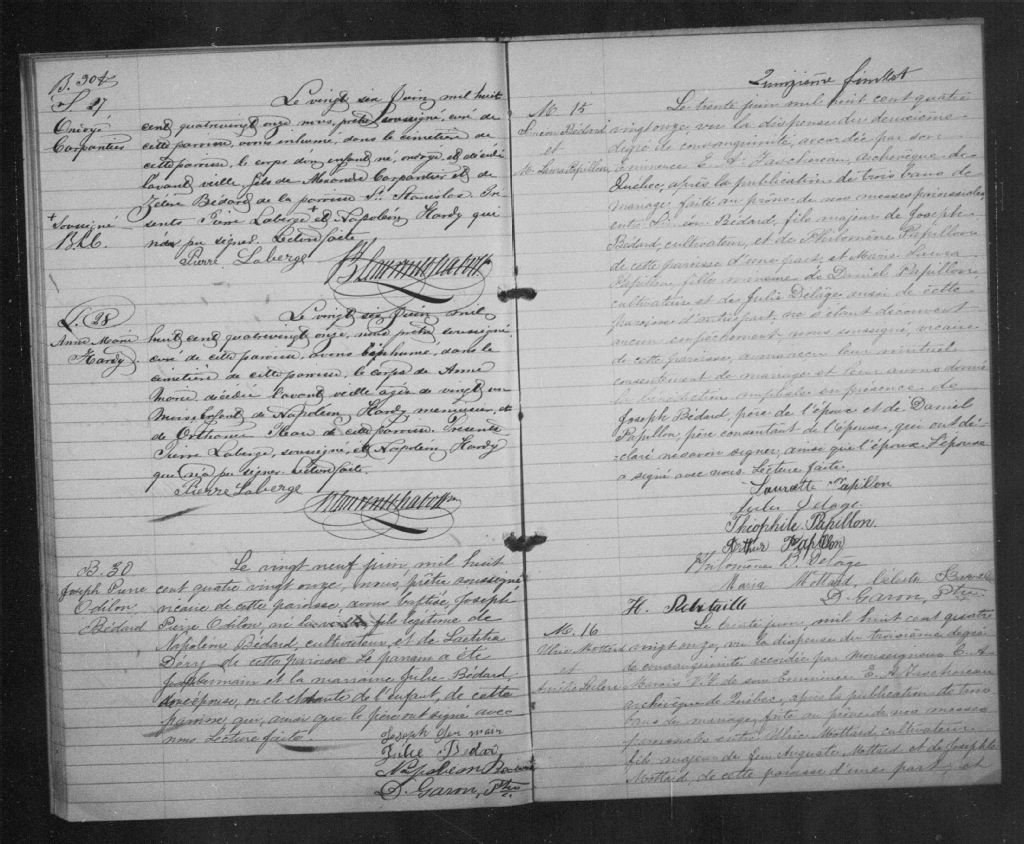 B. 30
S. 27
Ondoyé
Carpentier
Le vingt six Juin mil huit
cent quatrevingt onze nous, prêtre soussigné, curé de
cette paroisse, avons inhumé, dans le cimetière de
cette paroisse, le corps d'un enfant né, ondoyé et décédé
l'avant veille, fils de Carpentier et de
Zelire Bédard de la paroisse St. Stanislas. Pré-
sents Pierre Laberge + et Napoléon Hardy qui
n'a pu signer. Lecture faite
+ Soussigné
Pierre Laberge
S. 28
Anne Marie
Hardy
Le vingt six Juin mil
huit cent quatrevingt onze, nous prêtre soussigné
curé de cette paroisse, avons inhumé, dans le
cimetière de cette paroisse, le corps de Anne
Marie, décédée l'avant veille agée de vingt un
mois enfant de Napoléon Hardy, menuisier, et
de de cette paroisse. Presents
Pierre Laberge, soussigné, et Napoléon Hardy
qui n'a pu signer. Lecture faite.
Pierre Laberge
B. 30
Joseph Pierre
Odilon
Bédard
Le vingt neuf juin, mil huit
cent quatre vingt onze, nous, prêtre soussigné
vicaire de cette paroisse, avons baptisé, Joseph
Pierre Odilon, né la fils légitime de
Napoléon Bédard, cultivateur, et de Laetitia
Déry de cette paroisse. Le parrain a été
Joseph Germain et la marraine Julie Bédard,
son épouse, oncle et tante de l'enfant de cette
paroisse, qui, ainsi que le père ont signé avec
nous. Lecture faite.
Joseph Germain
Julie Bedar
Napoléon Bedard
D. Garon, Ptre
Quinzième feuillet
M. 15
Siméon Bédard
et
M. Laura Papillon
Le trente juin mil huit cent quatre
vingt onze, vu la dispense du deuxième
degré de consanguinité, accordée par son
Eminence E. A. Taschereau, archevêque de
Québec, après la publication de trois bans de
mariage faite au prône de nos messes paroissiales,
entre Siméon Bédard, fils majeur de Joseph
Bédard, cultivateur, et de Philomène Papillon
de cette paroisse d'une part, et Marie Laura
Papillon, fille mineure de Daniel Papillon
cultivateur et de Julie Delâge aussi de cette
paroisse d'autre part, ne s'étant découvert
aucun empêchement, nous soussigné, vicaire
de cette paroisse, avons reçu leur mutuel
consentement de mariage et leur avons donné
la bénédiction nuptiale en présence de
Joseph Bédard père de l'époux et de Daniel
Papillon, père consentant de l'épouse, qui ont dé-
claré ne savoir signer, ainsi que l'époux. L'épouse
a signé avec nous. Lecture faite.
Laurette Papillon
Jules Delage
Théophile Papillon
Arthur Papillon
Philomène D. Delage
Maria Mottard, Célesta
D. Garon, Ptre
H. Rehitaille
M. 16
Ulric Mottard
et
Le trente juin, mil huit cent quatre
vingt onze, vu la dispense du troisième degré
de consanguinité accordée par Monseigneur C. A.
Marois V. G. de son Eminence E. A. Taschereau
archevêque de Québec, après la publication de trois
bans de mariage, faite au prône de nos messes
paroissiales entre Ulric Mottard cultivateur
fils majeur de feu Auguste Mottard et de Josephte
Mottard, de cette paroisse d'une part, et